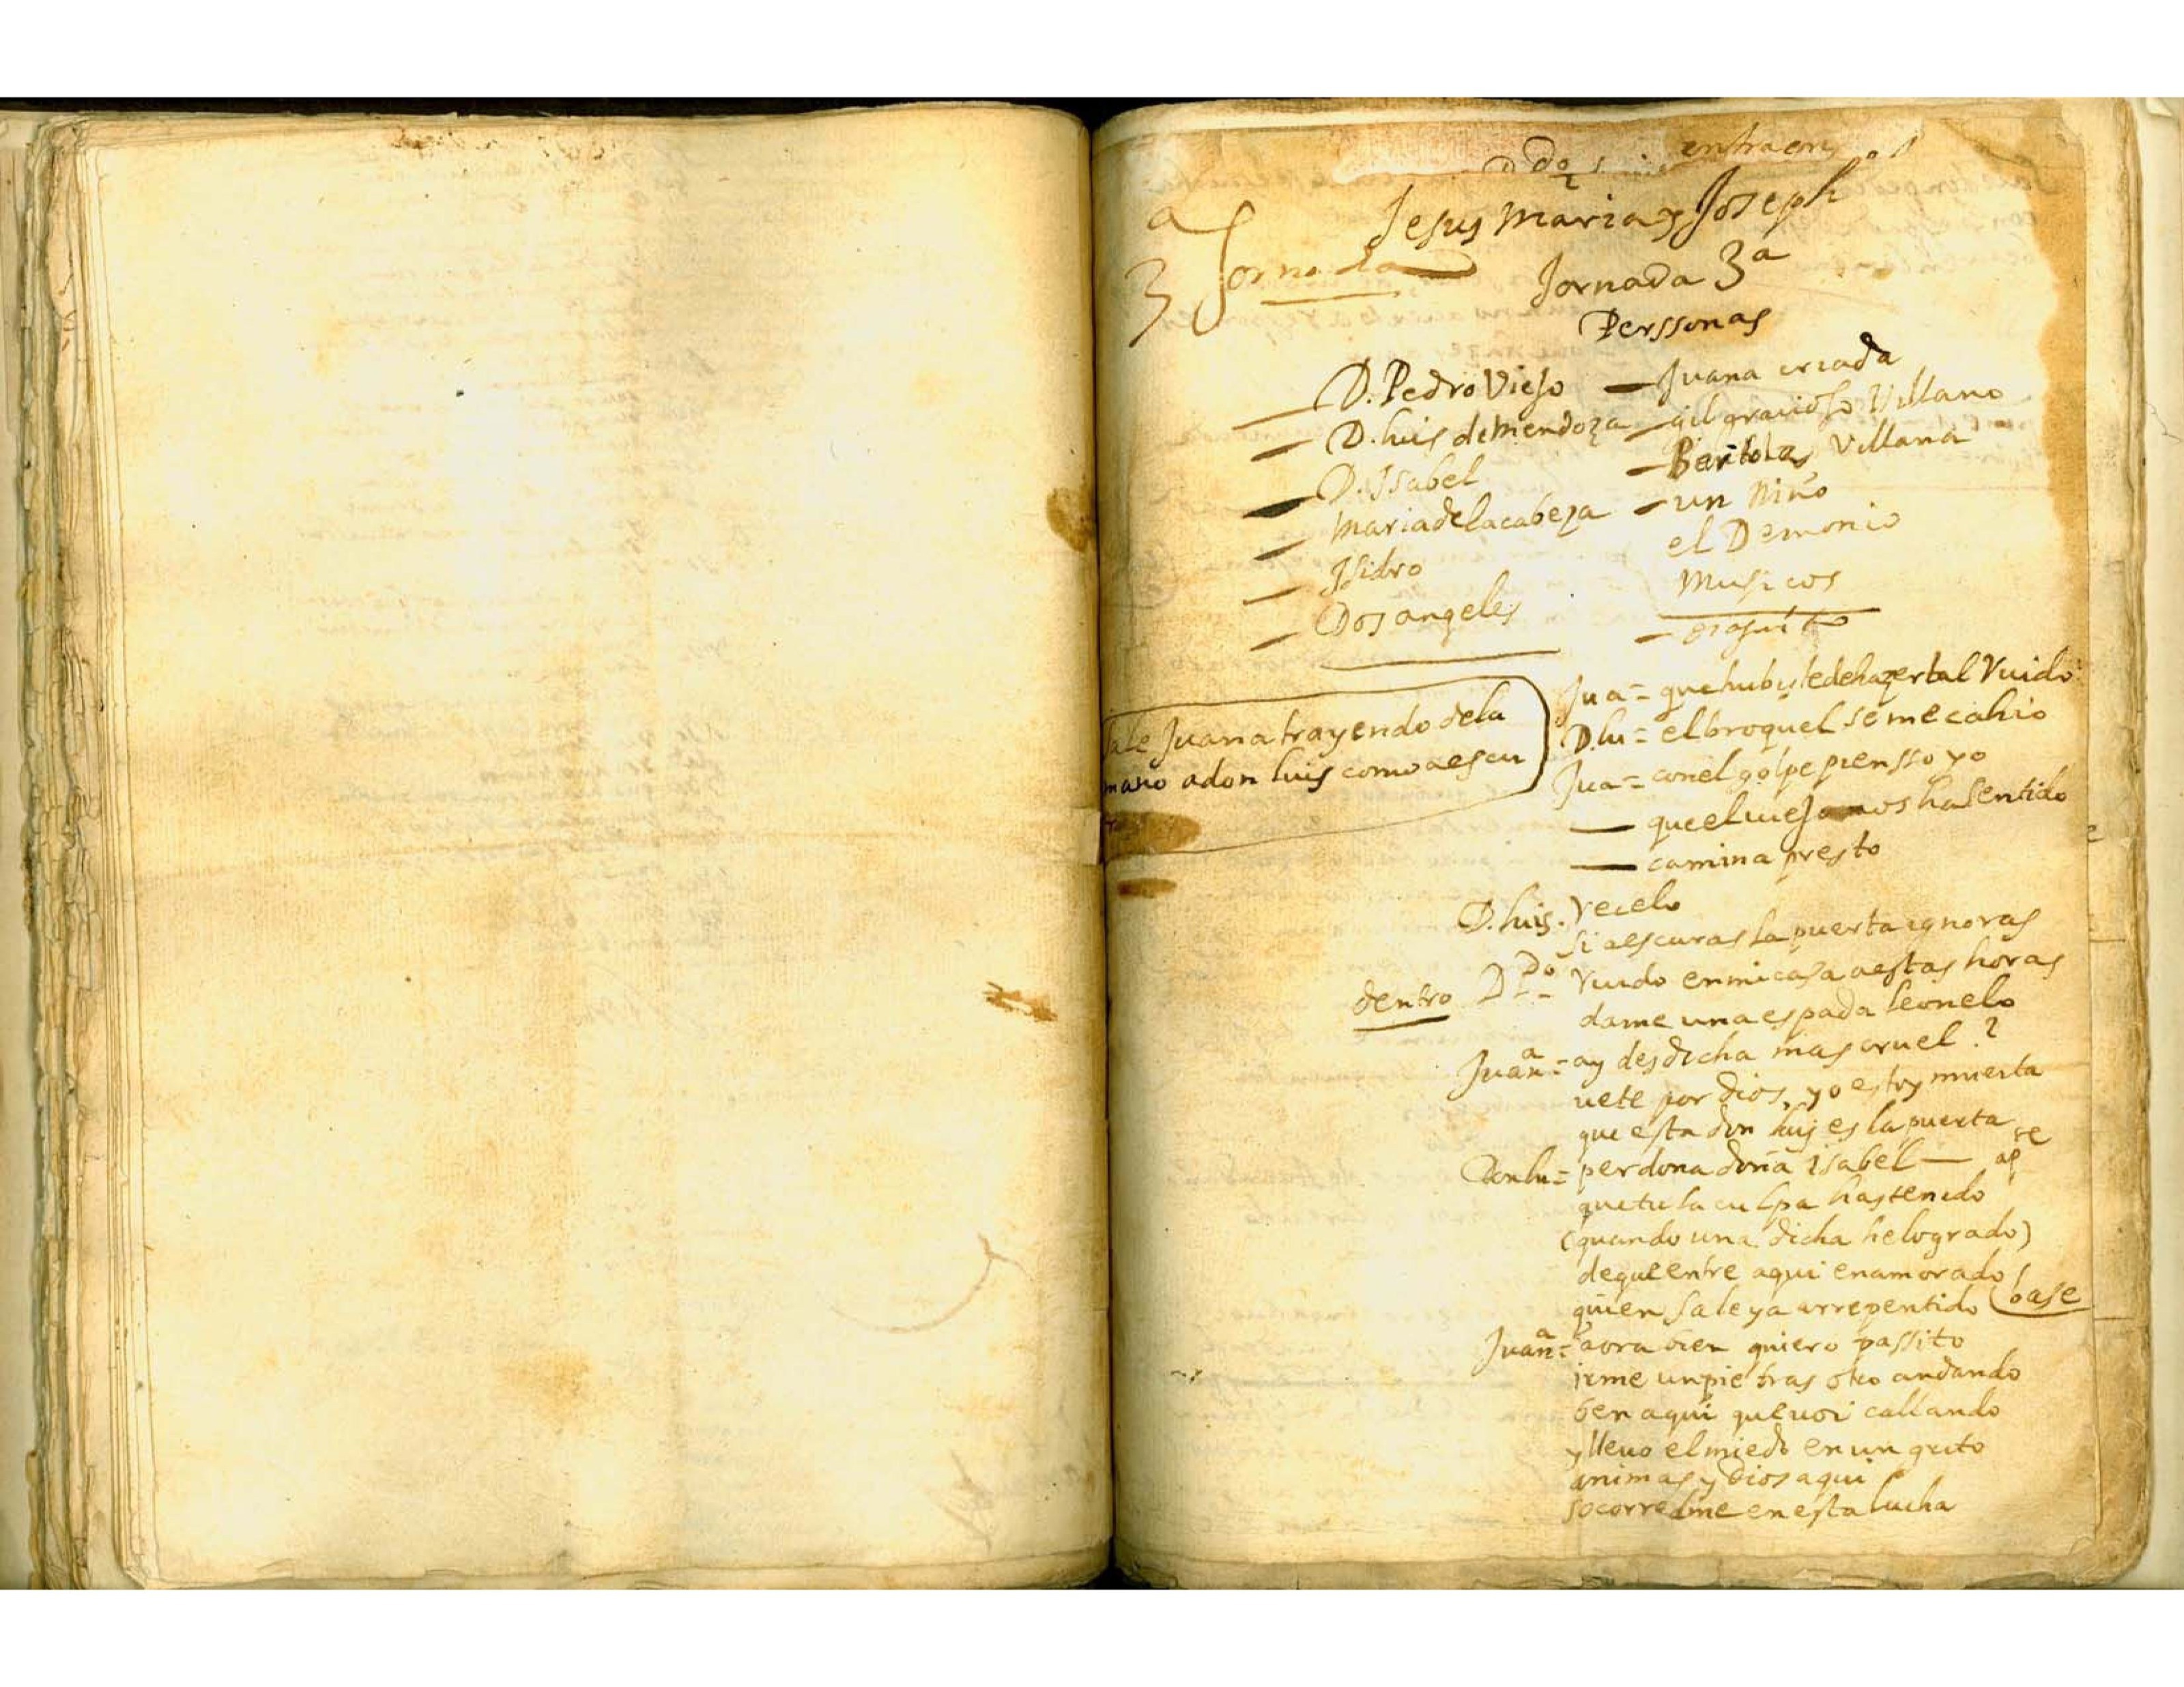 entra en
Jesus Maria y Joseph
3ª Jornada
Jornada 3ª
Perssonas
D. Pedro Viejo — Juana criada
D. luis de Mendoza — gil gracioso Villano
D. Isabel — Bartola Villana
Maria de la cabeza — un Niño
Isidro el Demonio
Dos angeles Musicos
sale Juana trayendo de la
mano a don luis como a escu
Jua = que hubiste de hazer tal Ruido
D. lu = el broquel se me cahio
Jua = con el golpe piensso yo
— que el uiejo nos ha sentido
— camina presto
D. luis. Recelo
si a escuras la puerta ignoras
dentro D Pº = Ruido en mi casa a estas horas
dame una espada leonelo
Juanª = ay desdicha mas cruel?
uete por dios, yo estoy muerta
que esta don luis es la puerta
Don lu = perdona doña isabel — apte
que tu la culpa has tenido
(quando una dicha he logrado)
de que entre aqui enamorado
quien sale ya arrepentido (base
Juanª = aora bien quiero passito
irme un pie tras otro andando
ben aqui que uoi callando
y lleuo el miedo en un grito
animas y Dios aqui
socorredme en esta lucha